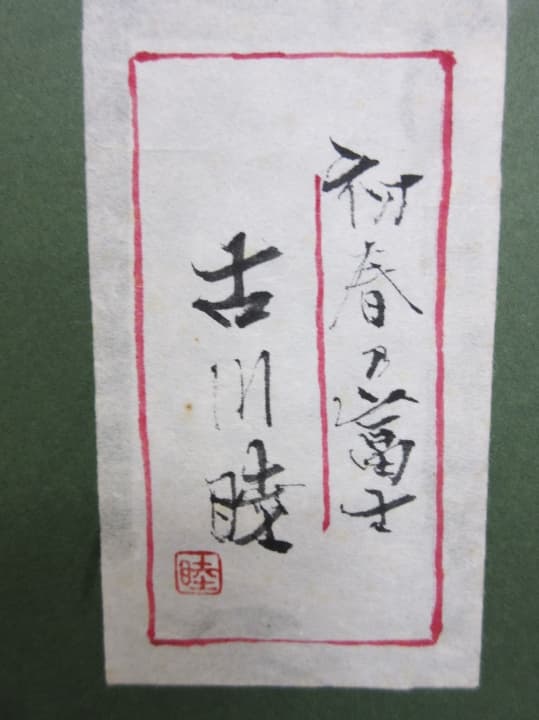 初春乃富士
古川睦
睦